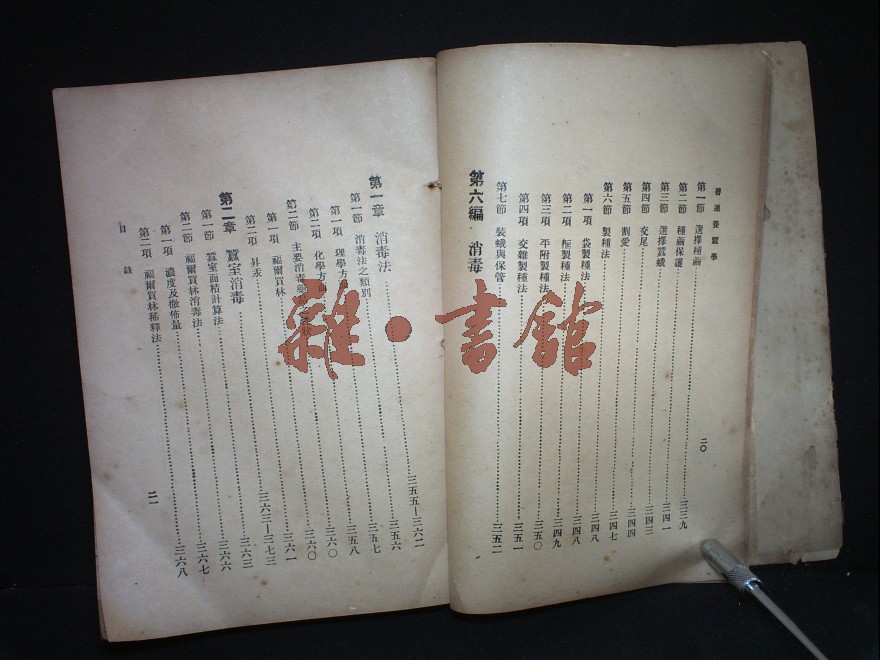 普通養蠶學
二〇
第一節 選擇種繭……三三九
第二節 種繭保護……三四一
第三節 選擇蠶蛾……三四三
第四節 交尾……三四四
第五節 割愛……三四七
第六節 製種法……三四八
第一項 袋製種法……三四八
第二項 框製種法……三四九
第三項 平附製種法……三五〇
第四項 交雜製種法……三五一
第七節 裝蛾與保管……三五二
第六編 消毒
第一章 消毒法……三五五—三六二
第一節 消毒法之類別……三五六
第一項 理學方面……三五七
第二項 化學方面……三五八
第二節 主要消毒藥……三六〇
第一項 福爾買林……三六〇
第二項 昇汞……三六一
第二章 蠶室消毒……三六二—三七三
第一節 蠶室面積計算法……三六三
第二節 福爾買林消毒法……三六六
第一項 濃度及撒佈量……三六七
第二項 福爾買林稀釋法……三六八
目錄
二一
雜·書館